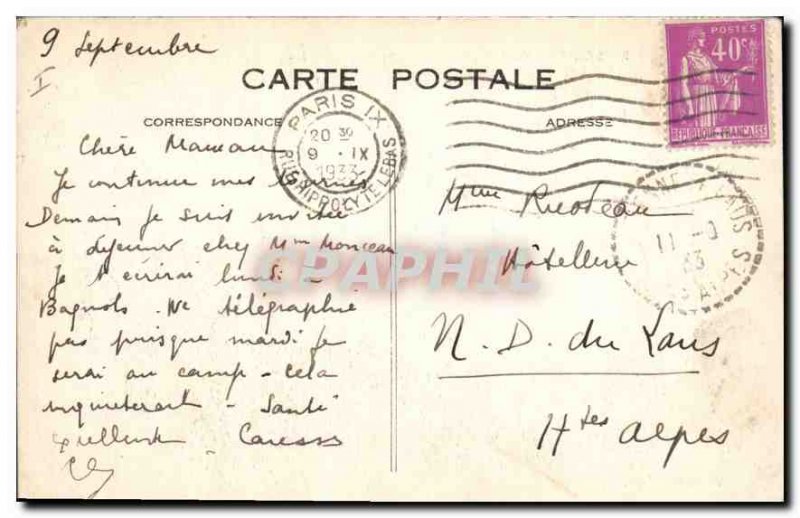 9 Septembre
I
CARTE POSTALE
CORRESPONDANCE
ADRESSE
POSTES
40c
RÉPUBLIQUE FRANÇAISE
PARIS IX
20 30
9 - IX
1933
RUE HIPPOLYTE LEBAS
Chère Maman
Je continue mes
Demain je suis invitée
à déjeuner chez Mme Monceau
Je t'écrirai lundi à
Bagnols. Ne télégraphie
pas puisque mardi je
serai au camp - cela
inquiéterait - Santé
excellente Caresses
Mme
Hôtellerie
N. D. du Laus
Htes Alpes
11 - 9
33
CPAPHIL